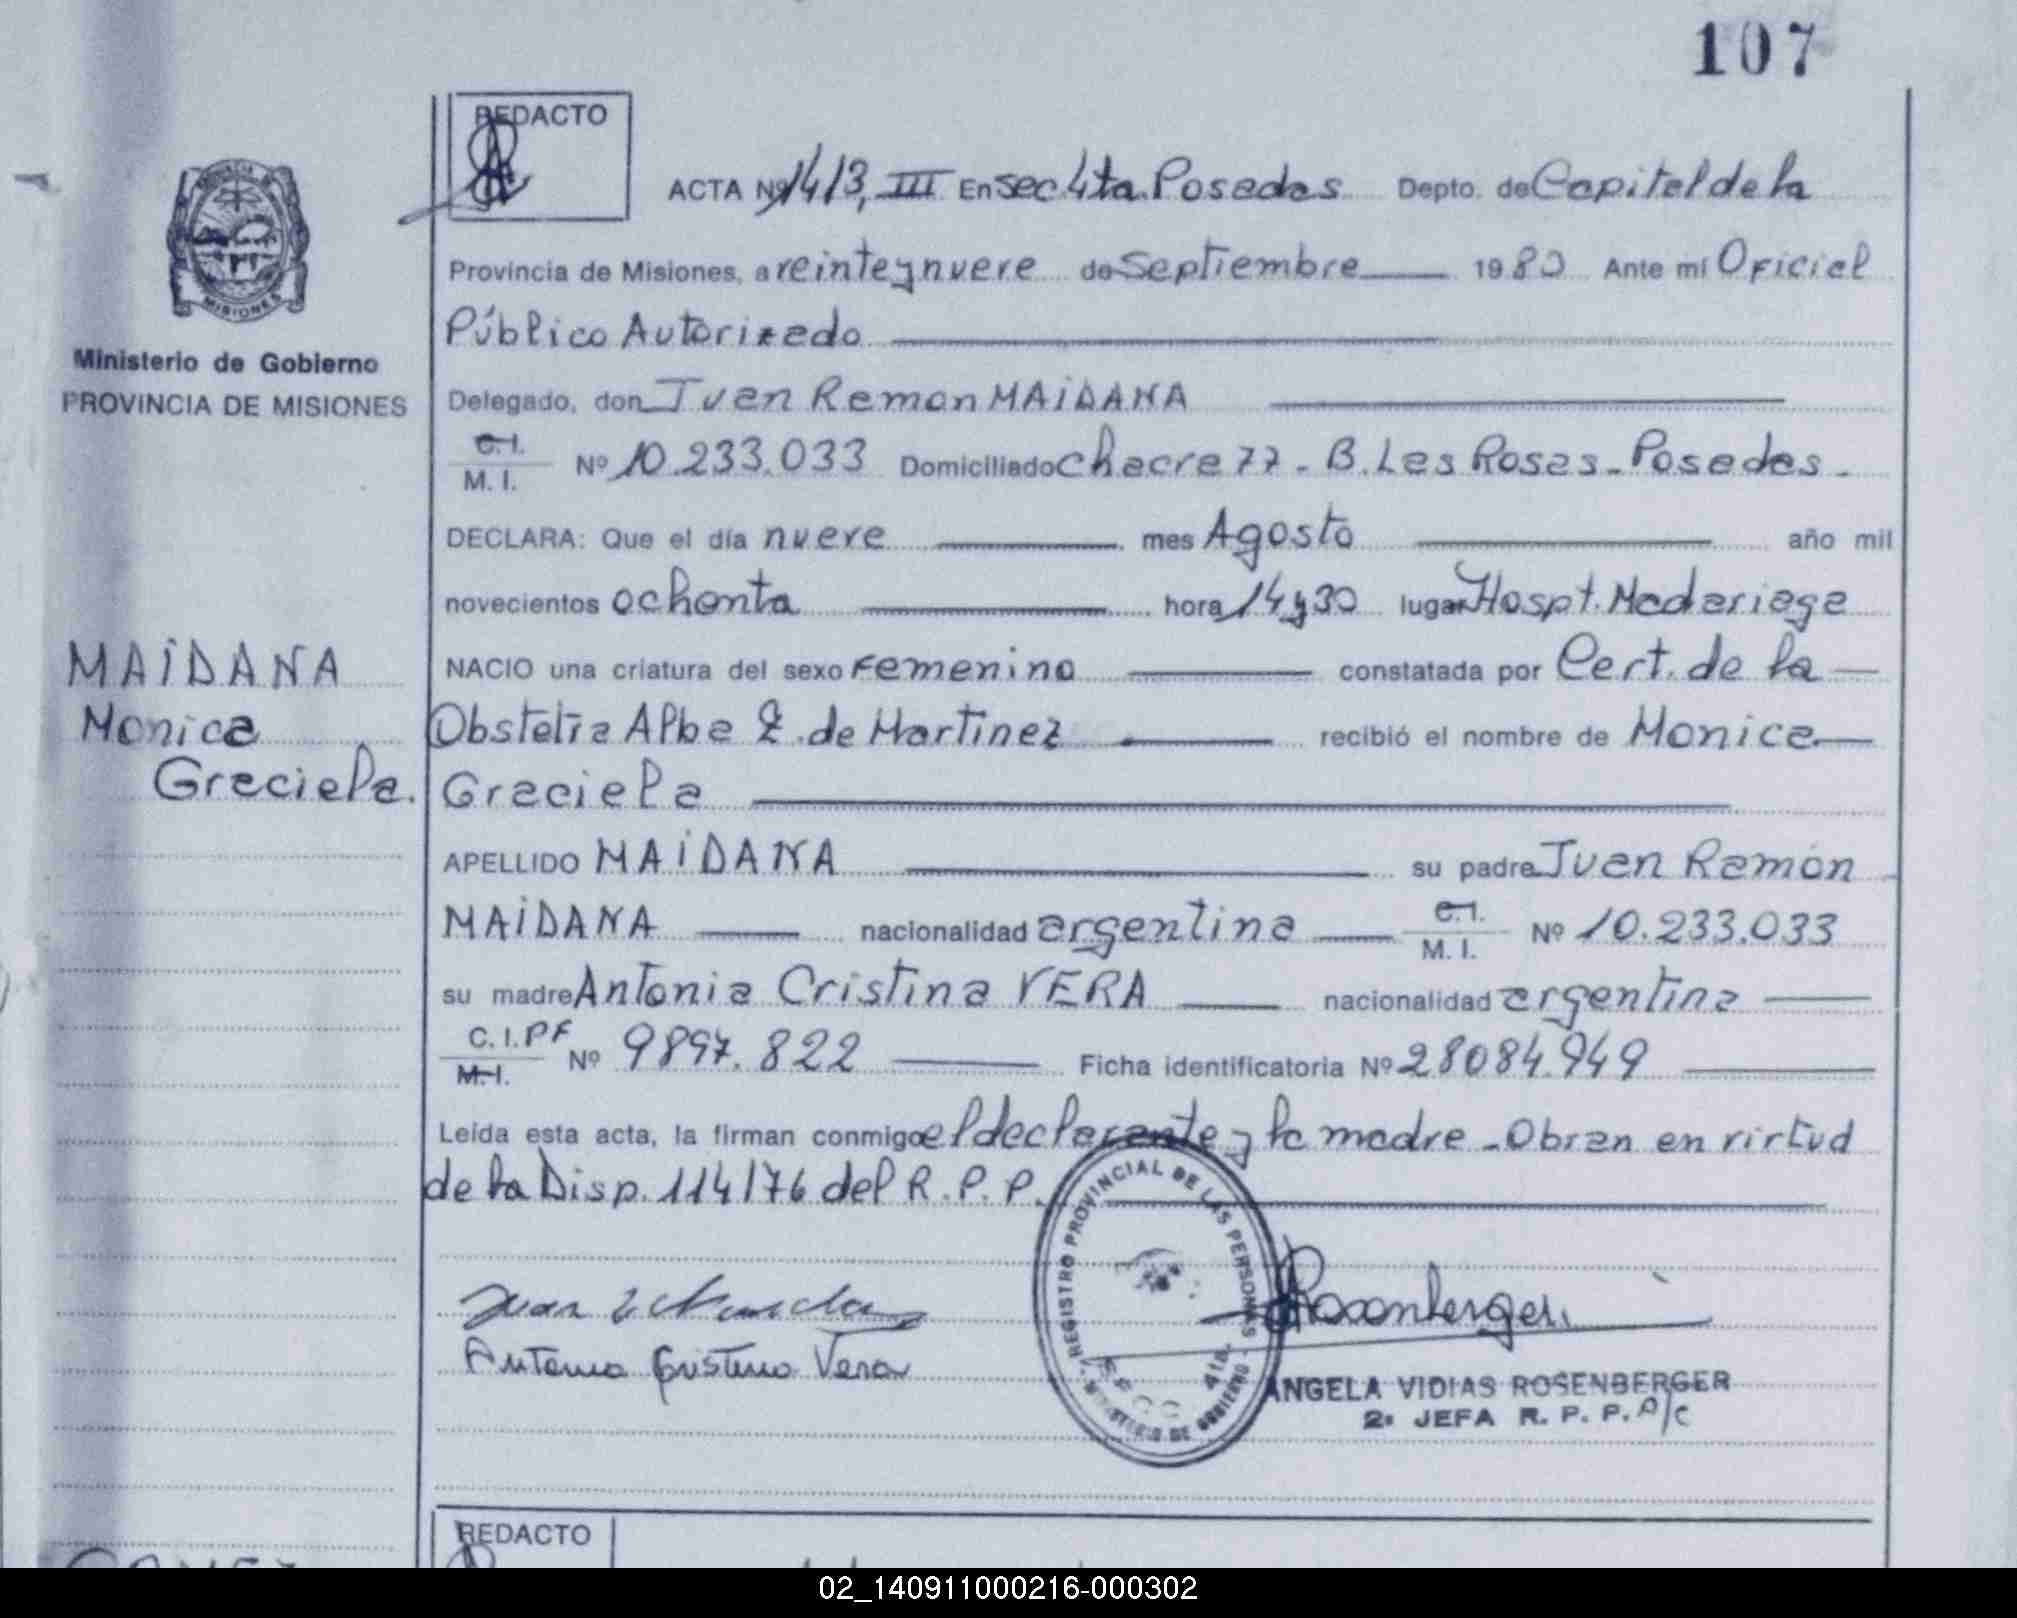 107
REDACTO
ACTA Nº 1413, III En Sec 4ta. Posadas Depto. de Capital de la
Provincia de Misiones, a veinte y nueve de Septiembre 1980 Ante mí Oficial
Público Autorizado
Ministerio de Gobierno
PROVINCIA DE MISIONES
Delegado, don Juan Ramon MAIDANA
C.I.
M. I. Nº 10.233.033 Domiciliado Chacra 77 - B. Las Rosas - Posadas -
DECLARA: Que el día nueve mes Agosto año mil
novecientos ochenta hora 14 y 30 lugar Hospt. Madariaga
MAIDANA
Monica
Graciela.
NACIO una criatura del sexo Femenino constatada por Cert. de la
Obstetra Alba Z. de Martinez recibió el nombre de Monica
Graciela
APELLIDO MAIDANA su padre Juan Ramón
MAIDANA nacionalidad argentina C.I.
M. I. Nº 10.233.033
su madre Antonia Cristina VERA nacionalidad argentina
C. I. PF
M. I. Nº 9897.822 Ficha identificatoria Nº 28084.949
Leída esta acta, la firman conmigo el declarante y la madre - Obran en virtud
de la Disp. 114/76 del R. P. P.
REGISTRO PROVINCIAL DE LAS PERSONAS - MINISTERIO DE GOBIERNO
SECC 4ta.
Antonia Cristina Vera
Rosenberger
ANGELA VIDIAS ROSENBERGER
2ª JEFA R. P. P. A/C
REDACTO
02_140911000216-000302